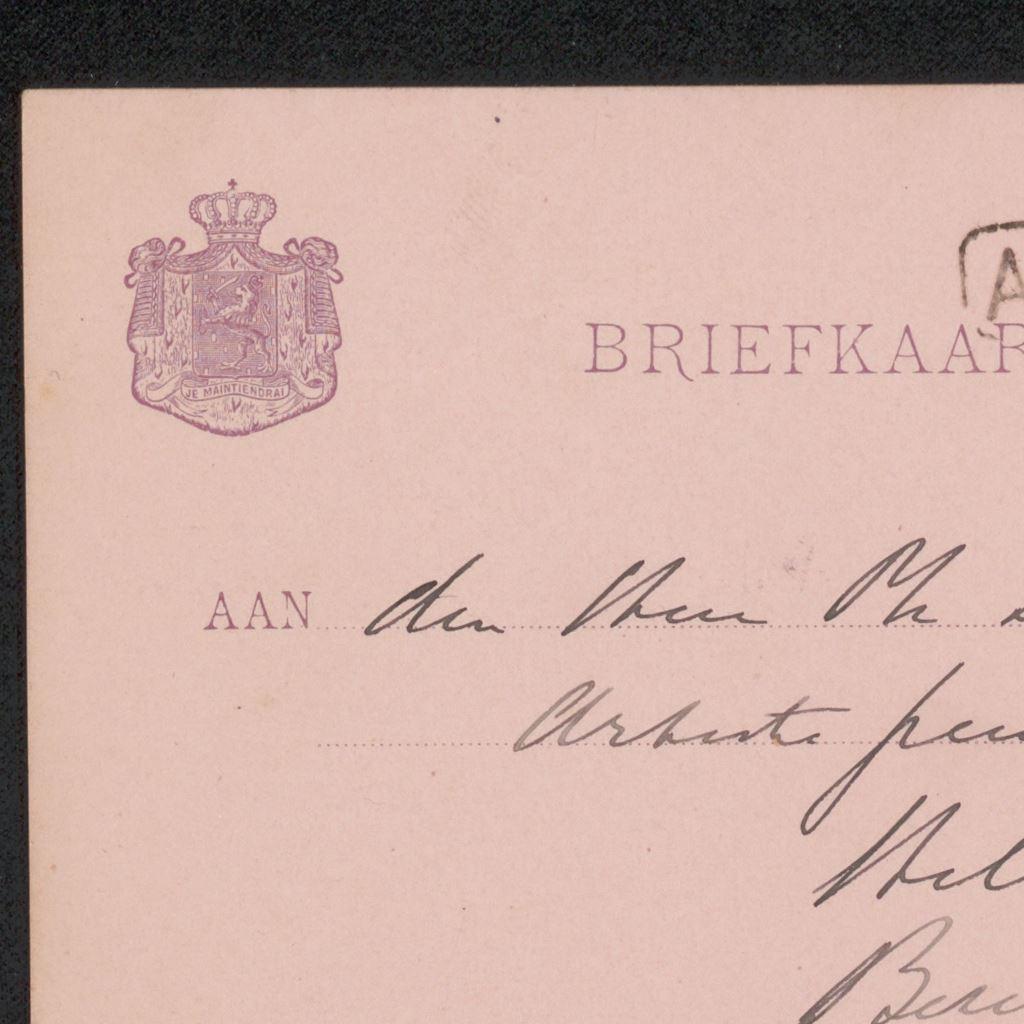 JE MAINTIENDRAI
A
BRIEFKAAR
AAN den Heer Ph
Artiste
Hel
Ber